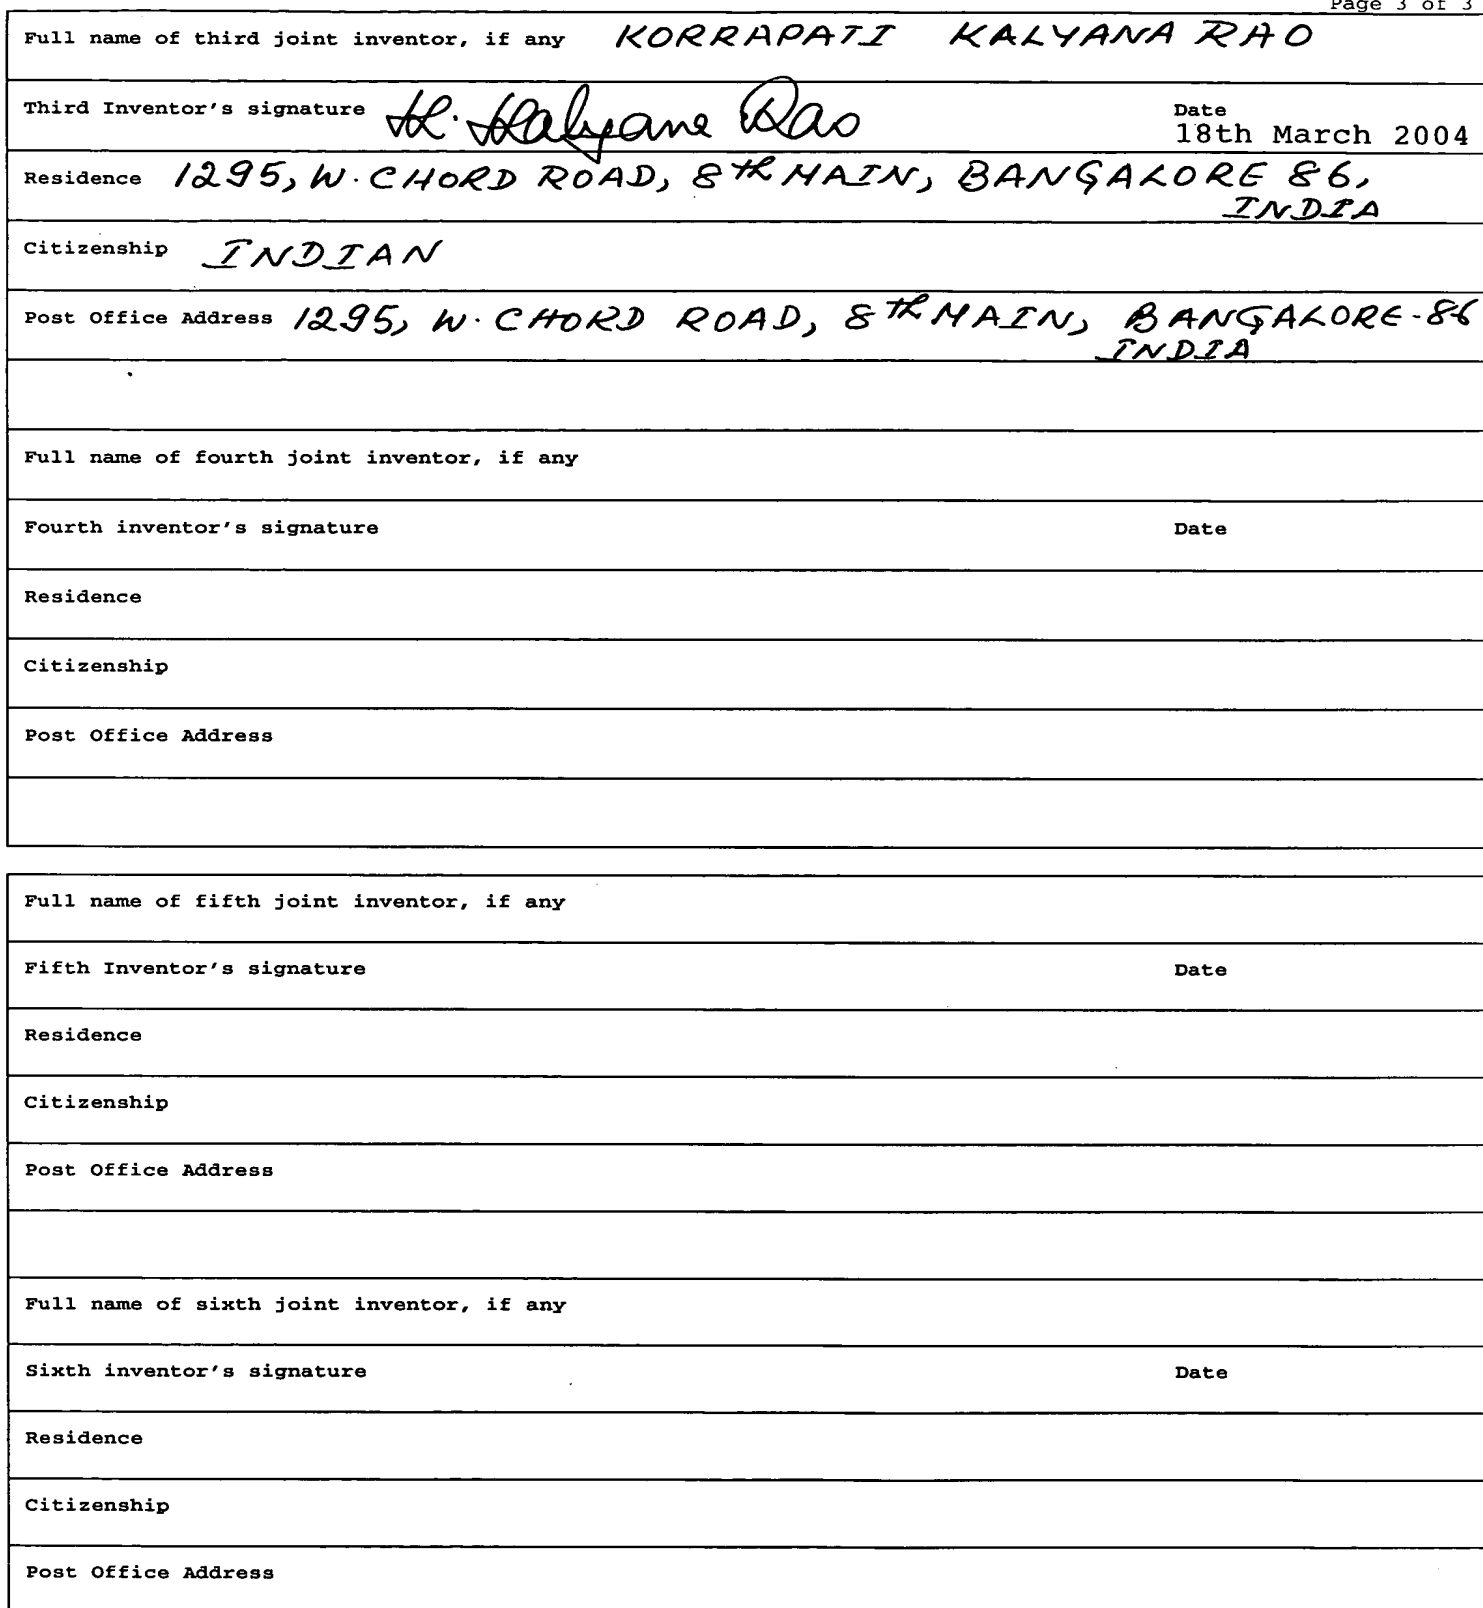 Page 3 of 3
Full name of third joint inventor, if any KORRAPATI KALYANA RAO
Third Inventor's signature K. Kalyana Rao Date
18th March 2004
Residence 1295, W. CHORD ROAD, 8th MAIN, BANGALORE 86,
INDIA
Citizenship INDIAN
Post Office Address 1295, W. CHORD ROAD, 8th MAIN, BANGALORE-86
INDIA
Full name of fourth joint inventor, if any
Fourth inventor's signature Date
Residence
Citizenship
Post Office Address
Full name of fifth joint inventor, if any
Fifth Inventor's signature Date
Residence
Citizenship
Post Office Address
Full name of sixth joint inventor, if any
Sixth inventor's signature Date
Residence
Citizenship
Post Office Address